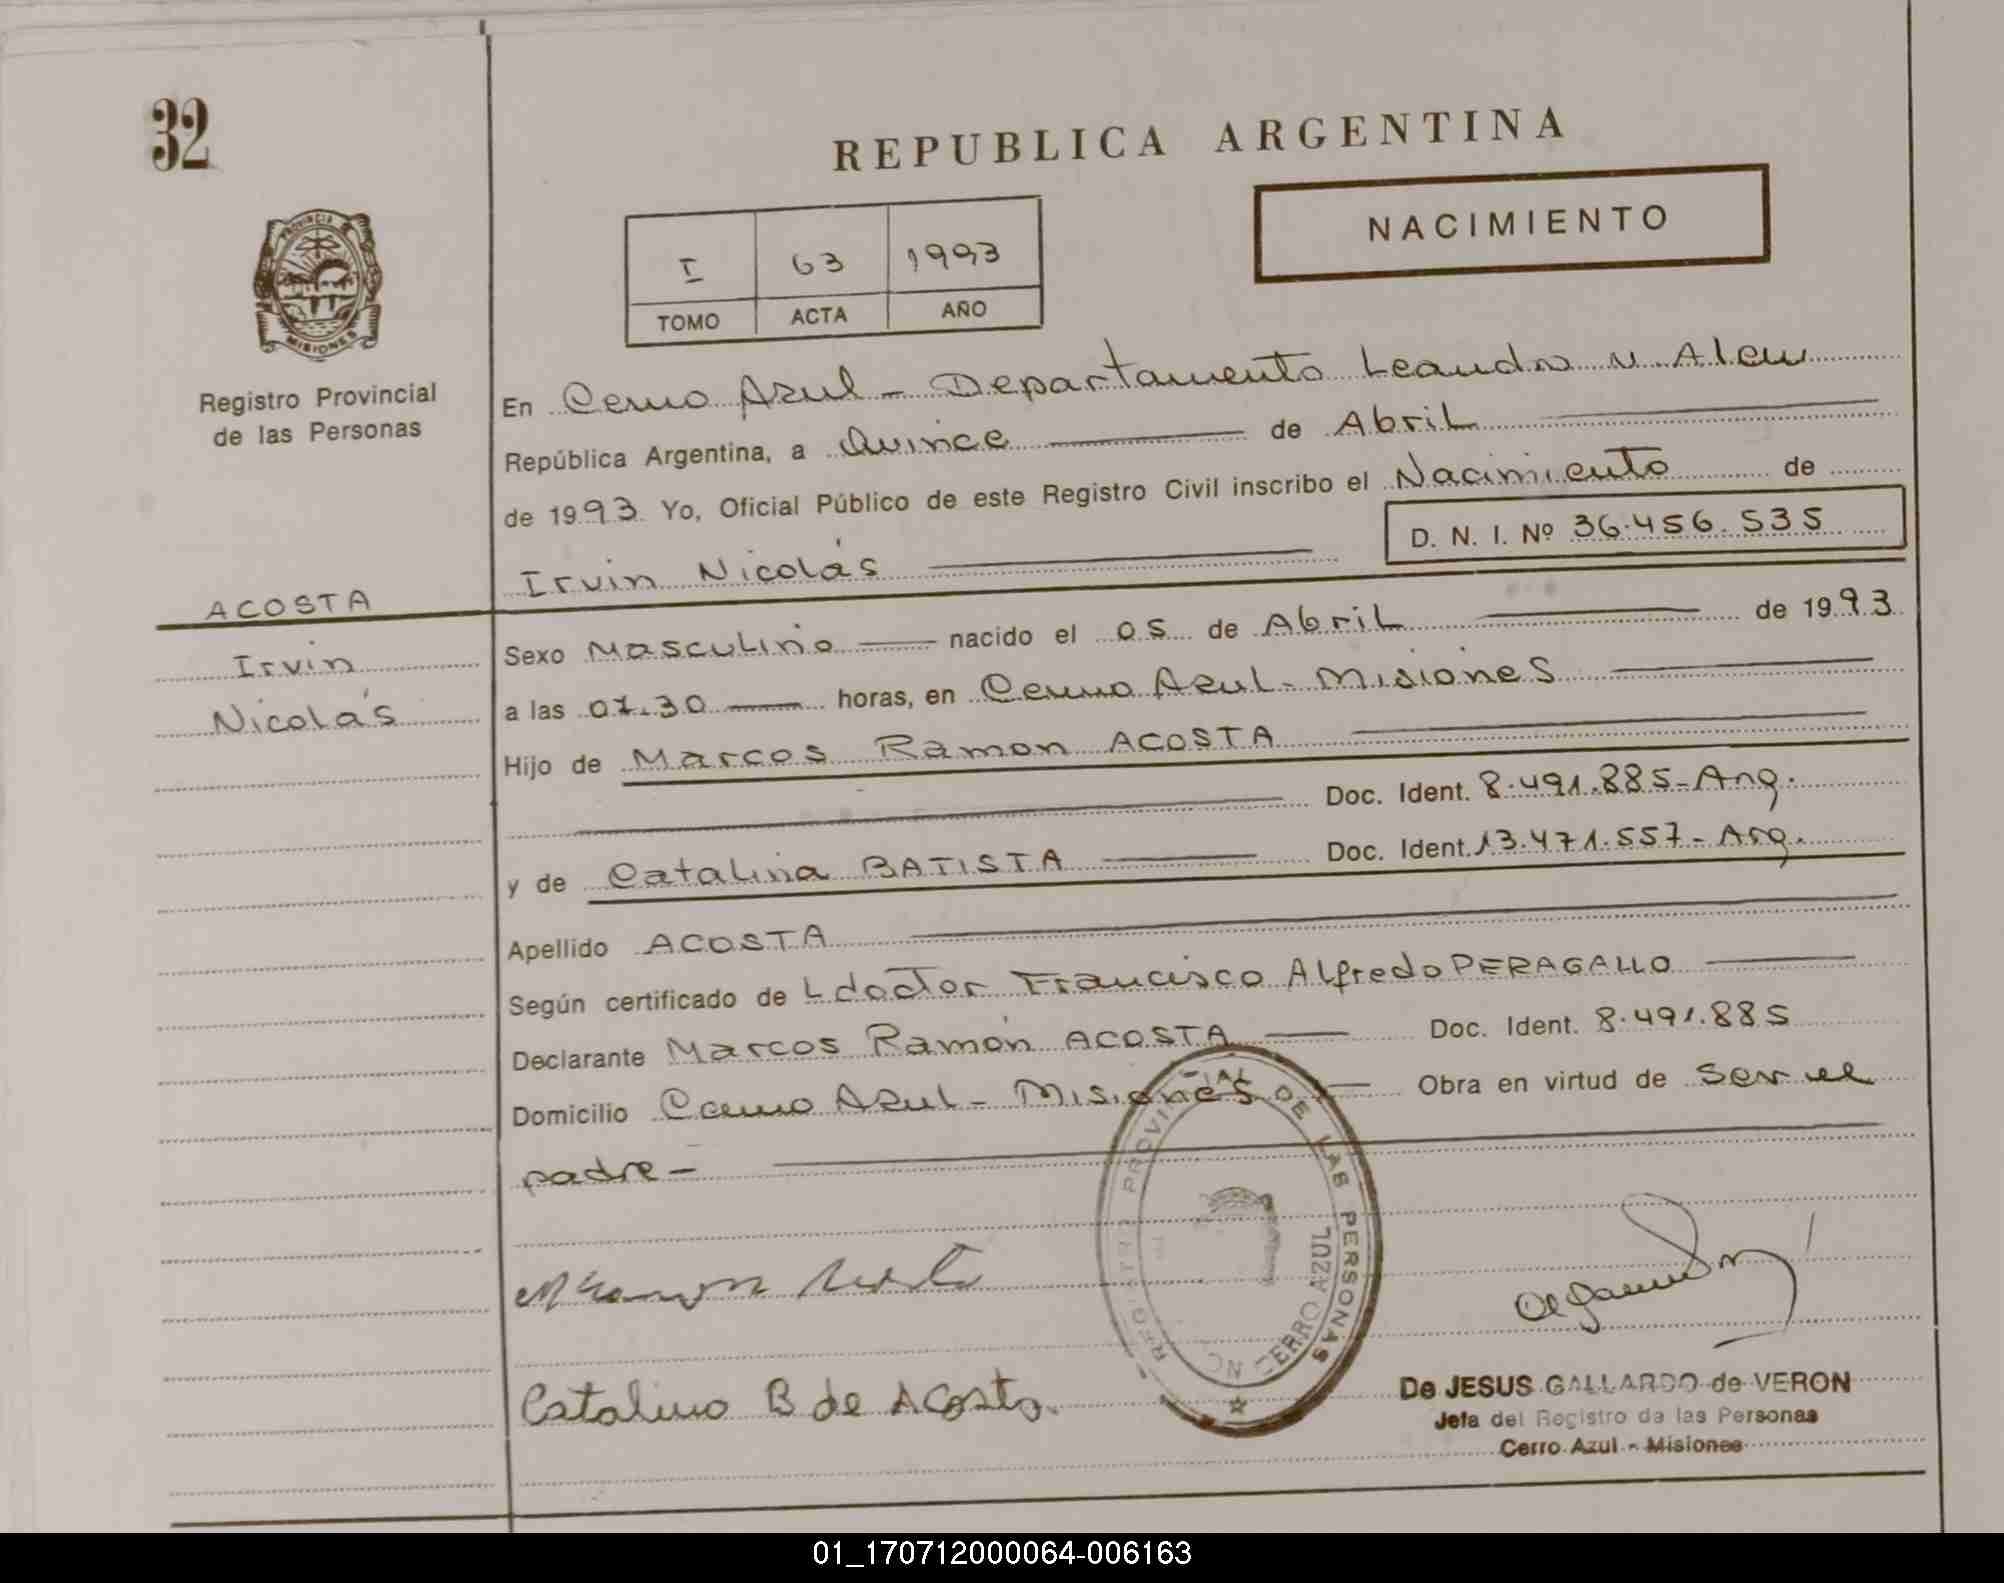 32
REPUBLICA ARGENTINA
NACIMIENTO
I 63 1993
TOMO ACTA AÑO
PROVINCIA
MISIONES
Registro Provincial
de las Personas
En Cerro Azul - Departamento Leandro N. Alem
República Argentina, a Quince de Abril
de 1993 Yo, Oficial Público de este Registro Civil inscribo el Nacimiento de
D. N. I. Nº 36.456.535
Irvin Nicolás
ACOSTA
Irvin
Nicolás
Sexo Masculino nacido el 05 de Abril de 1993
a las 07.30 horas, en Cerro Azul - Misiones
Hijo de Marcos Ramon ACOSTA
Doc. Ident. 8.491.885 - Arg.
y de Catalina BATISTA Doc. Ident. 13.471.557 - Arg.
Apellido ACOSTA
Según certificado de L doctor Francisco Alfredo PERAGALLO
Declarante Marcos Ramón ACOSTA Doc. Ident. 8.491.885
Domicilio Cerro Azul - Misiones Obra en virtud de Ser el
padre -
REGISTRO PROVINCIAL DE LAS PERSONAS
CERRO AZUL
Catalina B de Acosta.
De JESUS GALLARDO de VERON
Jefa del Registro de las Personas
Cerro Azul - Misiones
01_170712000064-006163